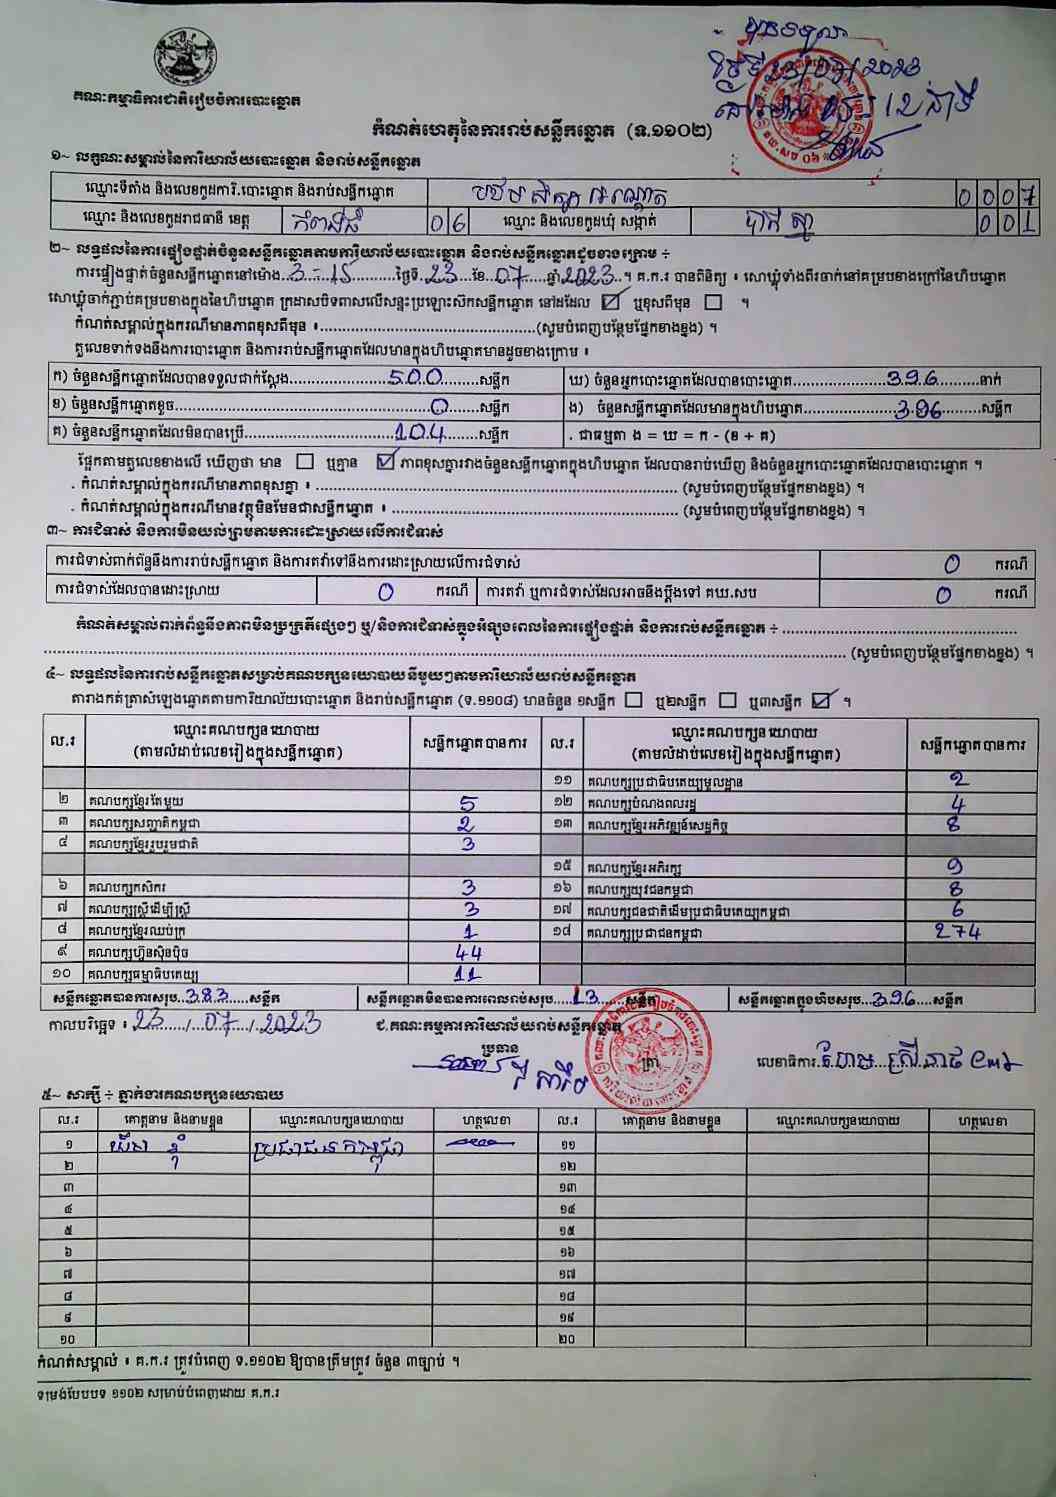 គណៈកម្មាធិការជាតិរៀបចំការបោះឆ្នោត
កំណត់ហេតុនៃការរាប់សន្លឹកឆ្នោត (ទ.១១០២)
១~ លក្ខណៈសម្គាល់នៃការិយាល័យបោះឆ្នោត និងរាប់សន្លឹកឆ្នោត
ឈ្មោះទីតាំង និងលេខកូដការិ.បោះឆ្នោត និងរាប់សន្លឹកឆ្នោត 0007
ឈ្មោះ និងលេខកូដរាជធានី ខេត្ត កំពង់ធំ 06 ឈ្មោះ និងលេខកូដឃុំ សង្កាត់ 001
២~ លទ្ធផលនៃការផ្ទៀងផ្ទាត់ចំនួនសន្លឹកឆ្នោតតាមការិយាល័យបោះឆ្នោត និងរាប់សន្លឹកឆ្នោតដូចខាងក្រោម ÷
ការផ្ទៀងផ្ទាត់ចំនួនសន្លឹកឆ្នោតនៅម៉ោង 3-15 ថ្ងៃទី 23 ខែ 07 ឆ្នាំ 2023 ។ គ.ក.រ បានពិនិត្យ ៖ សោឃ្លុំទាំងពីរចាក់នៅគម្របខាងក្រៅនៃហិបឆ្នោត
សោឃ្លុំចាក់ភ្ជាប់គម្របខាងក្នុងនៃហិបឆ្នោត ក្រដាសបិទពាសលើសន្ទះប្រឡោះសឹកសន្លឹកឆ្នោត នៅដដែល ☑ ឬខុសពីមុន ☐ ។
កំណត់សម្គាល់ក្នុងករណីមានភាពខុសពីមុន ៖ (សូមបំពេញបន្ថែមផ្នែកខាងខ្នង) ។
តួលេខទាក់ទងនឹងការបោះឆ្នោត និងការរាប់សន្លឹកឆ្នោតដែលមានក្នុងហិបឆ្នោតមានដូចខាងក្រោម ៖
ក) ចំនួនសន្លឹកឆ្នោតដែលបានទទួលជាក់ស្តែង 500 សន្លឹក ឃ) ចំនួនអ្នកបោះឆ្នោតដែលបានបោះឆ្នោត 396 នាក់
ខ) ចំនួនសន្លឹកឆ្នោតខូច 0 សន្លឹក ង) ចំនួនសន្លឹកឆ្នោតដែលមានក្នុងហិបឆ្នោត 396 សន្លឹក
គ) ចំនួនសន្លឹកឆ្នោតដែលមិនបានប្រើ 104 សន្លឹក . ជាធម្មតា ង = ឃ = ក - (ខ + គ)
ផ្អែកតាមតួលេខខាងលើ ឃើញថា មាន ☐ ឬគ្មាន ☑ ភាពខុសគ្នារវាងចំនួនសន្លឹកឆ្នោតក្នុងហិបឆ្នោត ដែលបានរាប់ឃើញ និងចំនួនអ្នកបោះឆ្នោតដែលបានបោះឆ្នោត ។
. កំណត់សម្គាល់ក្នុងករណីមានភាពខុសគ្នា ៖ (សូមបំពេញបន្ថែមផ្នែកខាងខ្នង) ។
. កំណត់សម្គាល់ក្នុងករណីមានវត្ថុមិនមែនជាសន្លឹកឆ្នោត ៖ (សូមបំពេញបន្ថែមផ្នែកខាងខ្នង) ។
៣~ ការជំទាស់ និងការមិនយល់ព្រមតាមការដោះស្រាយលើការជំទាស់
ការជំទាស់ពាក់ព័ន្ធនឹងការរាប់សន្លឹកឆ្នោត និងការតវ៉ាទៅនឹងការដោះស្រាយលើការជំទាស់ 0 ករណី
ការជំទាស់ដែលបានដោះស្រាយ 0 ករណី ការតវ៉ា ឬការជំទាស់ដែលអាចនឹងប្តឹងទៅ គឃ.សប 0 ករណី
កំណត់សម្គាល់ពាក់ព័ន្ធនឹងភាពមិនប្រក្រតីផ្សេងៗ ឬ/និងការជំទាស់ក្នុងអំឡុងពេលនៃការផ្ទៀងផ្ទាត់ និងការរាប់សន្លឹកឆ្នោត ÷
(សូមបំពេញបន្ថែមផ្នែកខាងខ្នង) ។
៤~ លទ្ធផលនៃការរាប់សន្លឹកឆ្នោតសម្រាប់គណបក្សនយោបាយនីមួយៗតាមការិយាល័យរាប់សន្លឹកឆ្នោត
តារាងកត់ត្រាសំឡេងឆ្នោតតាមការិយាល័យបោះឆ្នោត និងរាប់សន្លឹកឆ្នោត (ទ.១១០៨) មានចំនួន ១សន្លឹក ☐ ឬ២សន្លឹក ☐ ឬ៣សន្លឹក ☑ ។
ល.រ ឈ្មោះគណបក្សនយោបាយ (តាមលំដាប់លេខរៀងក្នុងសន្លឹកឆ្នោត) សន្លឹកឆ្នោតបានការ ល.រ ឈ្មោះគណបក្សនយោបាយ (តាមលំដាប់លេខរៀងក្នុងសន្លឹកឆ្នោត) សន្លឹកឆ្នោតបានការ
១១ គណបក្សប្រជាធិបតេយ្យមូលដ្ឋាន 2
២ គណបក្សខ្មែរតែមួយ 5 ១២ គណបក្សបំណងពលរដ្ឋ 4
៣ គណបក្សសញ្ជាតិកម្ពុជា 2 ១៣ គណបក្សខ្មែរអភិវឌ្ឍន៍សេដ្ឋកិច្ច 8
៤ គណបក្សខ្មែររួបរួមជាតិ 3
១៥ គណបក្សខ្មែរអភិរក្ស 9
៦ គណបក្សកសិករ 3 ១៦ គណបក្សយុវជនកម្ពុជា 8
៧ គណបក្សស្ត្រីដើម្បីស្ត្រី 3 ១៧ គណបក្សជនជាតិដើមប្រជាធិបតេយ្យកម្ពុជា 6
៨ គណបក្សខ្មែរឈប់ក្រ 1 ១៨ គណបក្សប្រជាជនកម្ពុជា 274
៩ គណបក្សហ្វ៊ុនស៊ិនប៉ិច 44
១០ គណបក្សធម្មាធិបតេយ្យ 11
សន្លឹកឆ្នោតបានការសរុប 383 សន្លឹក សន្លឹកឆ្នោតមិនបានការពេលរាប់សរុប 13 សន្លឹក សន្លឹកឆ្នោតក្នុងហិបសរុប 396 សន្លឹក
កាលបរិច្ឆេទ ៖ 23 / 07 / 2023 ជ.គណៈកម្មការការិយាល័យរាប់សន្លឹកឆ្នោត
ប្រធាន ត្រា លេខាធិការ
៥~ សាក្សី ÷ ភ្នាក់ងារគណបក្សនយោបាយ
ល.រ គោត្តនាម និងនាមខ្លួន ឈ្មោះគណបក្សនយោបាយ ហត្ថលេខា ល.រ គោត្តនាម និងនាមខ្លួន ឈ្មោះគណបក្សនយោបាយ ហត្ថលេខា
១ ប្រជាជនកម្ពុជា ១១
២ ១២
៣ ១៣
៤ ១៤
៥ ១៥
៦ ១៦
៧ ១៧
៨ ១៨
៩ ១៩
១០ ២០
កំណត់សម្គាល់ ៖ គ.ក.រ ត្រូវបំពេញ ទ.១១០២ ឱ្យបានត្រឹមត្រូវ ចំនួន ៣ច្បាប់ ។
ទម្រង់បែបបទ ១១០២ សម្រាប់បំពេញដោយ គ.ក.រ